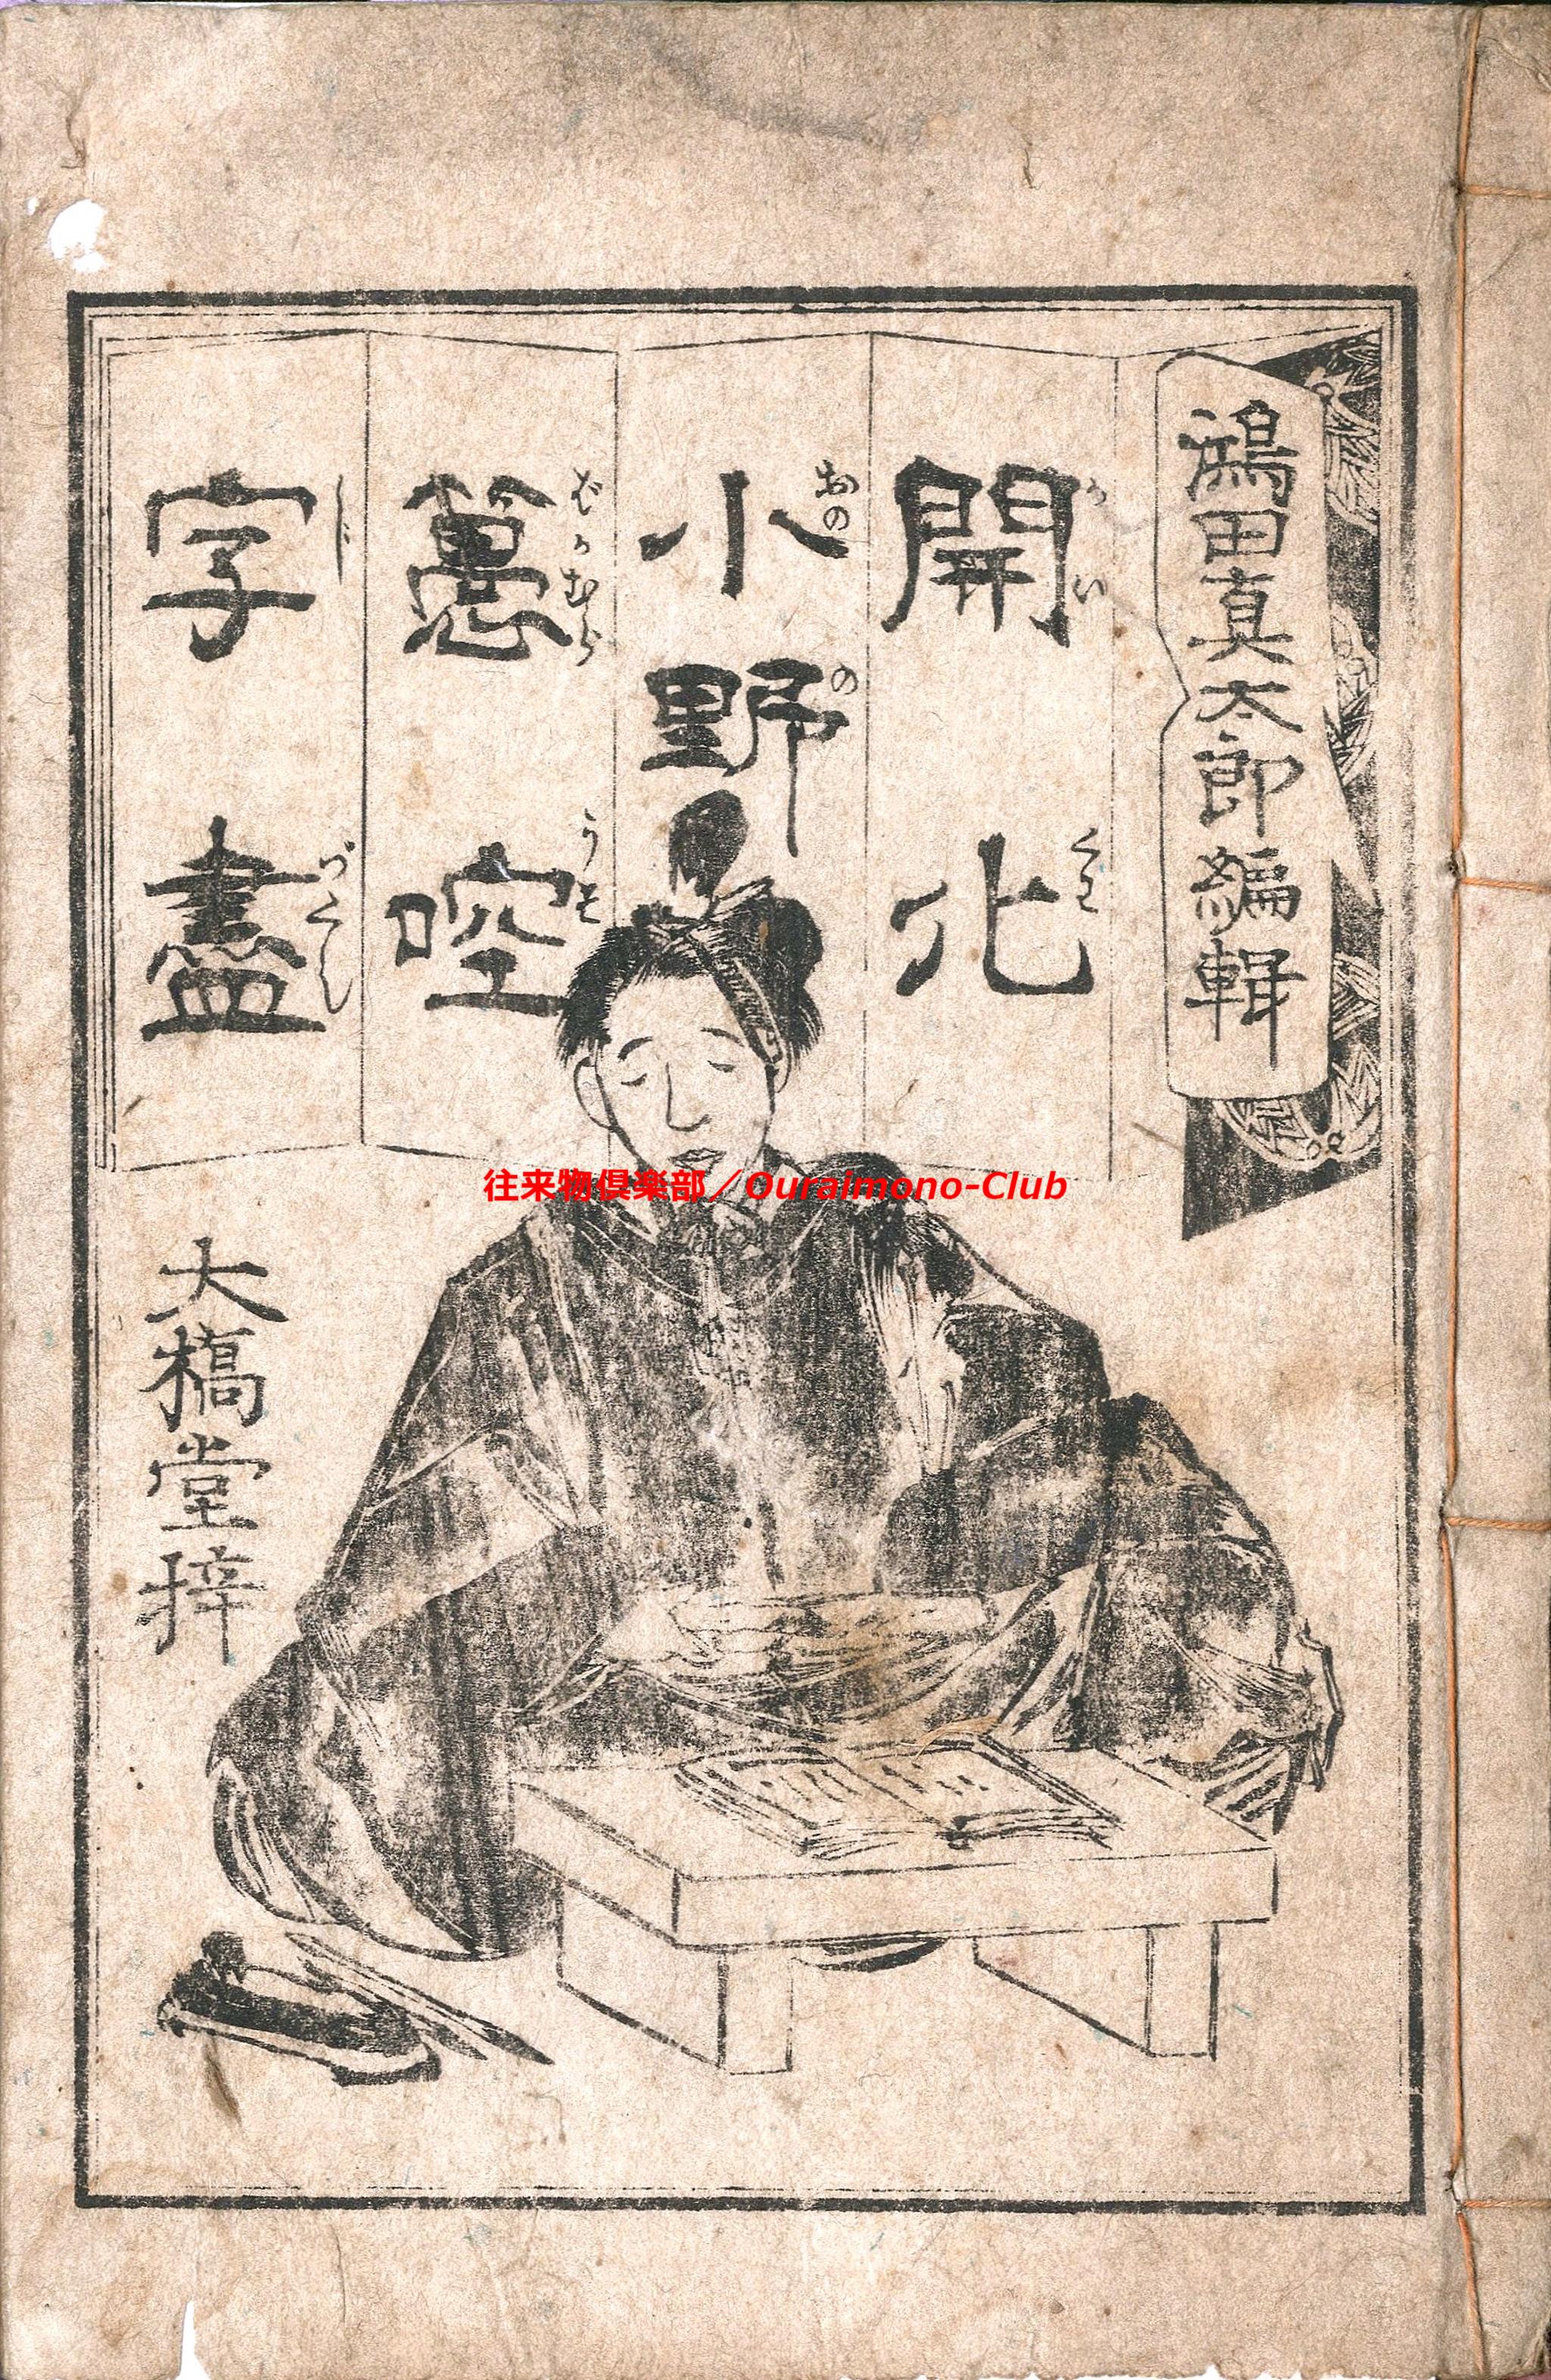 鴻田真太郎編輯
開化
かいくわ
小野
おのの
䓗啌
ばかむらうそ
字盡
じづくし
大橋堂梓
往来物倶楽部／Ouraimono-Club